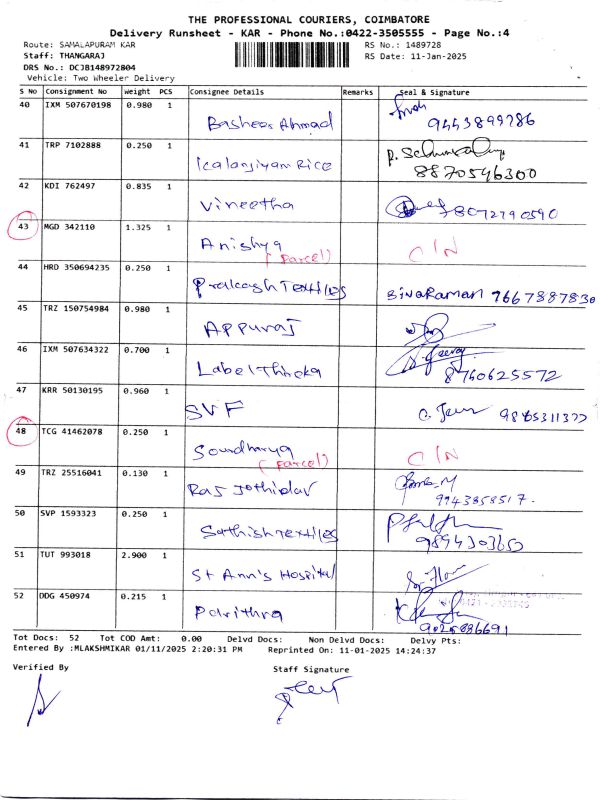 THE PROFESSIONAL COURIERS, COIMBATORE
Delivery Runsheet - KAR - Phone No.:0422-3505555 - Page No.:4
Route: SAMALAPURAM KAR RS No.: 1489728
Staff: THANGARAJ RS Date: 11-Jan-2025
DRS No.: DCJB148972804
Vehicle: Two Wheeler Delivery
S No Consignment No Weight PCS Consignee Details Remarks Seal & Signature
40 IXM 507670198 0.980 1
Basheer Ahmad 9443899786
41 TRP 7102888 0.250 1
Kalanjiyam Rice 8870546300
42 KDI 762497 0.835 1
Vineetha 8072790590
43 MGD 342110 1.325 1
Anishya C/N
(Parcel)
44 HRD 350694235 0.250 1
Prakash Textiles Sivaraman 7667887830
45 TRZ 150754984 0.980 1
Appuraj
46 IXM 507634322 0.700 1
Label Thinka 8760625572
47 KRR 50130195 0.960 1
SVF 9865311377
48 TCG 41462078 0.250 1
Soundharya C/N
(Parcel)
49 TRZ 25516041 0.130 1
Raj Jothidar 9943858517.
50 SVP 1593323 0.250 1
Sathish Textiles 9894303650
51 TUT 993018 2.900 1
St Ann's Hospital
52 DDG 450974 0.215 1
Pavithra 9025886691
Tot Docs: 52 Tot COD Amt: 0.00 Delvd Docs: Non Delvd Docs: Delvy Pts:
Entered By :MLAKSHMIKAR 01/11/2025 2:20:31 PM Reprinted On: 11-01-2025 14:24:37
Verified By Staff Signature